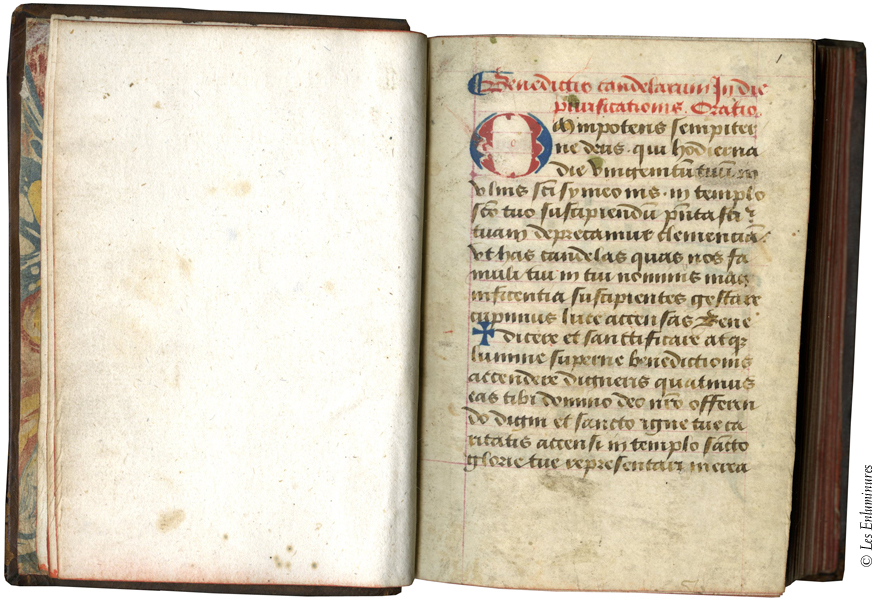 1
Benedictio candelarum In die
purificationis. Oratio.
Omnipotens sempiter
ne deus. qui hodierna
die vnigenitū tuū in
vlnis sci symeonis. in templo
sco tuo suscipiendū pntasti
tuam deprecamur clemenciā.
vt has candelas quas nos fa
muli tui in tui nominis mag
nificentia suscipientes gestare
cupimus luce accensas Bene
✠ dicere et sanctificare atq
lumine superne benedictionis
accendere digneris quatinus
eas tibi domino deo nro offeren
do digni et sancto igne tue ca
ritatis accensi in templo sancto
glorie tue representari merea
© Les Enluminures